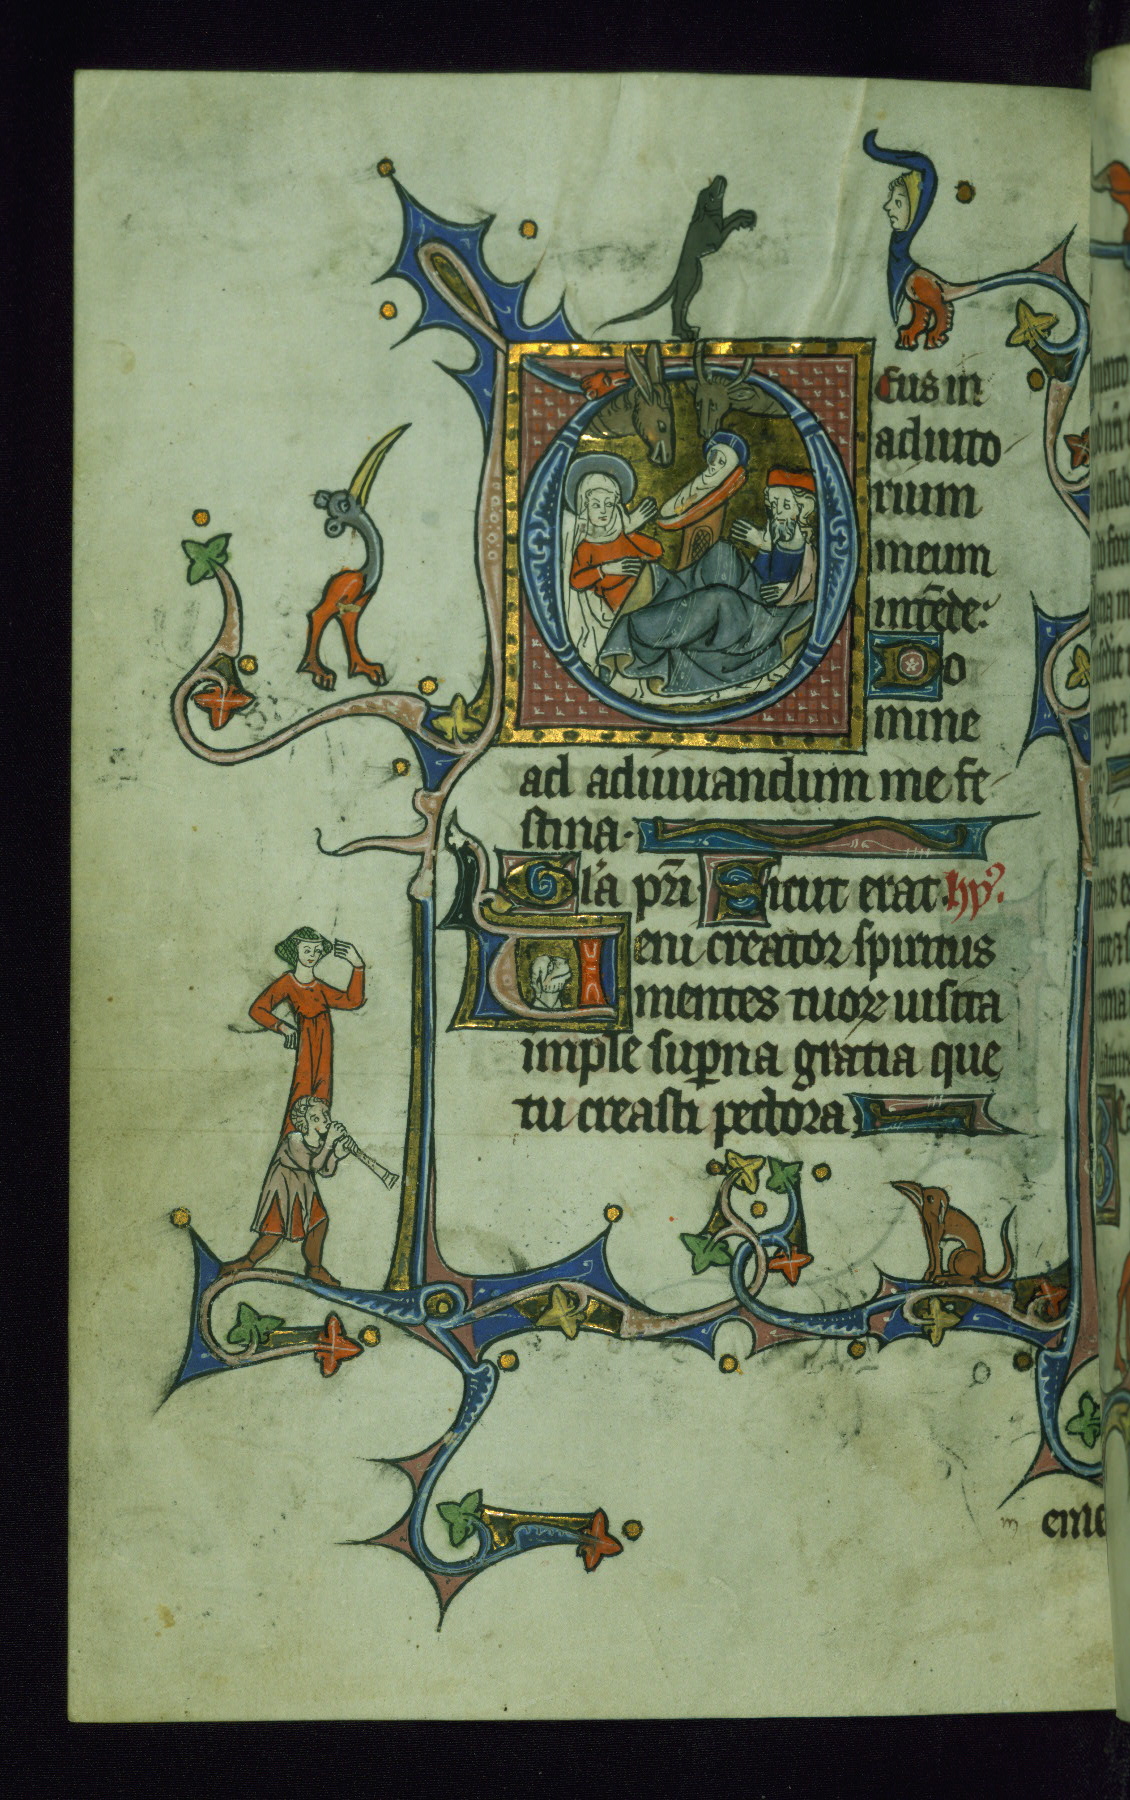 Deus in
adiuto
rium
meum
intēde:
Do
mine
ad adiuuandum me fe
stina.
Gl'a pr̄i Sicut erat. hy᾿.
Ueni creator spiritus
mentes tuoꝝ uisita
imple sup̄na gratia que
tu creasti pectora
m eme